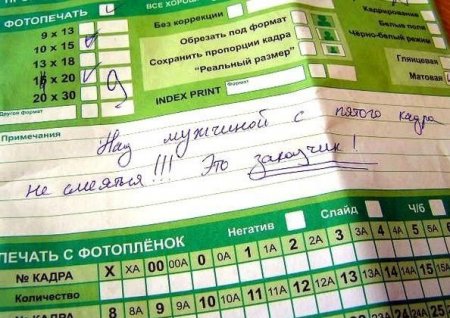 ФОТОПЕЧАТЬ
9 x 13
10 x 15
13 x 18
15 x 20
20 x 30
Другой формат
ВСЕ ХОРОШ
Без коррекции
Обрезать под формат
Сохранить пропорции кадра
"Реальный размер"
INDEX PRINT
Кадрирование
Белые поля
Чёрно-белый режим
Глянцевая
Матовая
Примечания
Над мужчиной с пятого кадра
не смеяться!!! Это заказчик!
ПЕЧАТЬ С ФОТОПЛЁНОК
Негатив
Слайд
Ч/б
№ КАДРА X XA 00 00A 0 0A 1 1A 2 2A 3 3A 4 4A 5 5A 6
Количество
№ КАДРА 8 8A 9 9A 10 10A 11 11A 12 12A 13 13A 14 14A 15 15A
Количество 25A